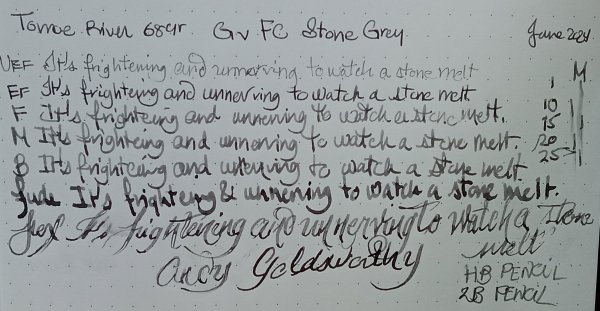 Tomoe River 68gr GvFC Stone Grey June 2024
UEF It's frightening and unnerving to watch a stone melt M
EF It's frightening and unnerving to watch a stone melt 1
F It's frightening and unnerving to watch a stone melt. 10
15
M It's frightening and unnerving to watch a stone melt. 20
B It's frightening and unnerving to watch a stone melt. 25
Jude It's frightening & unnerving to watch a stone melt.
It's frightening and unnerving to watch a stone
melt
Andy Goldsworthy
HB PENCIL
2B PENCIL